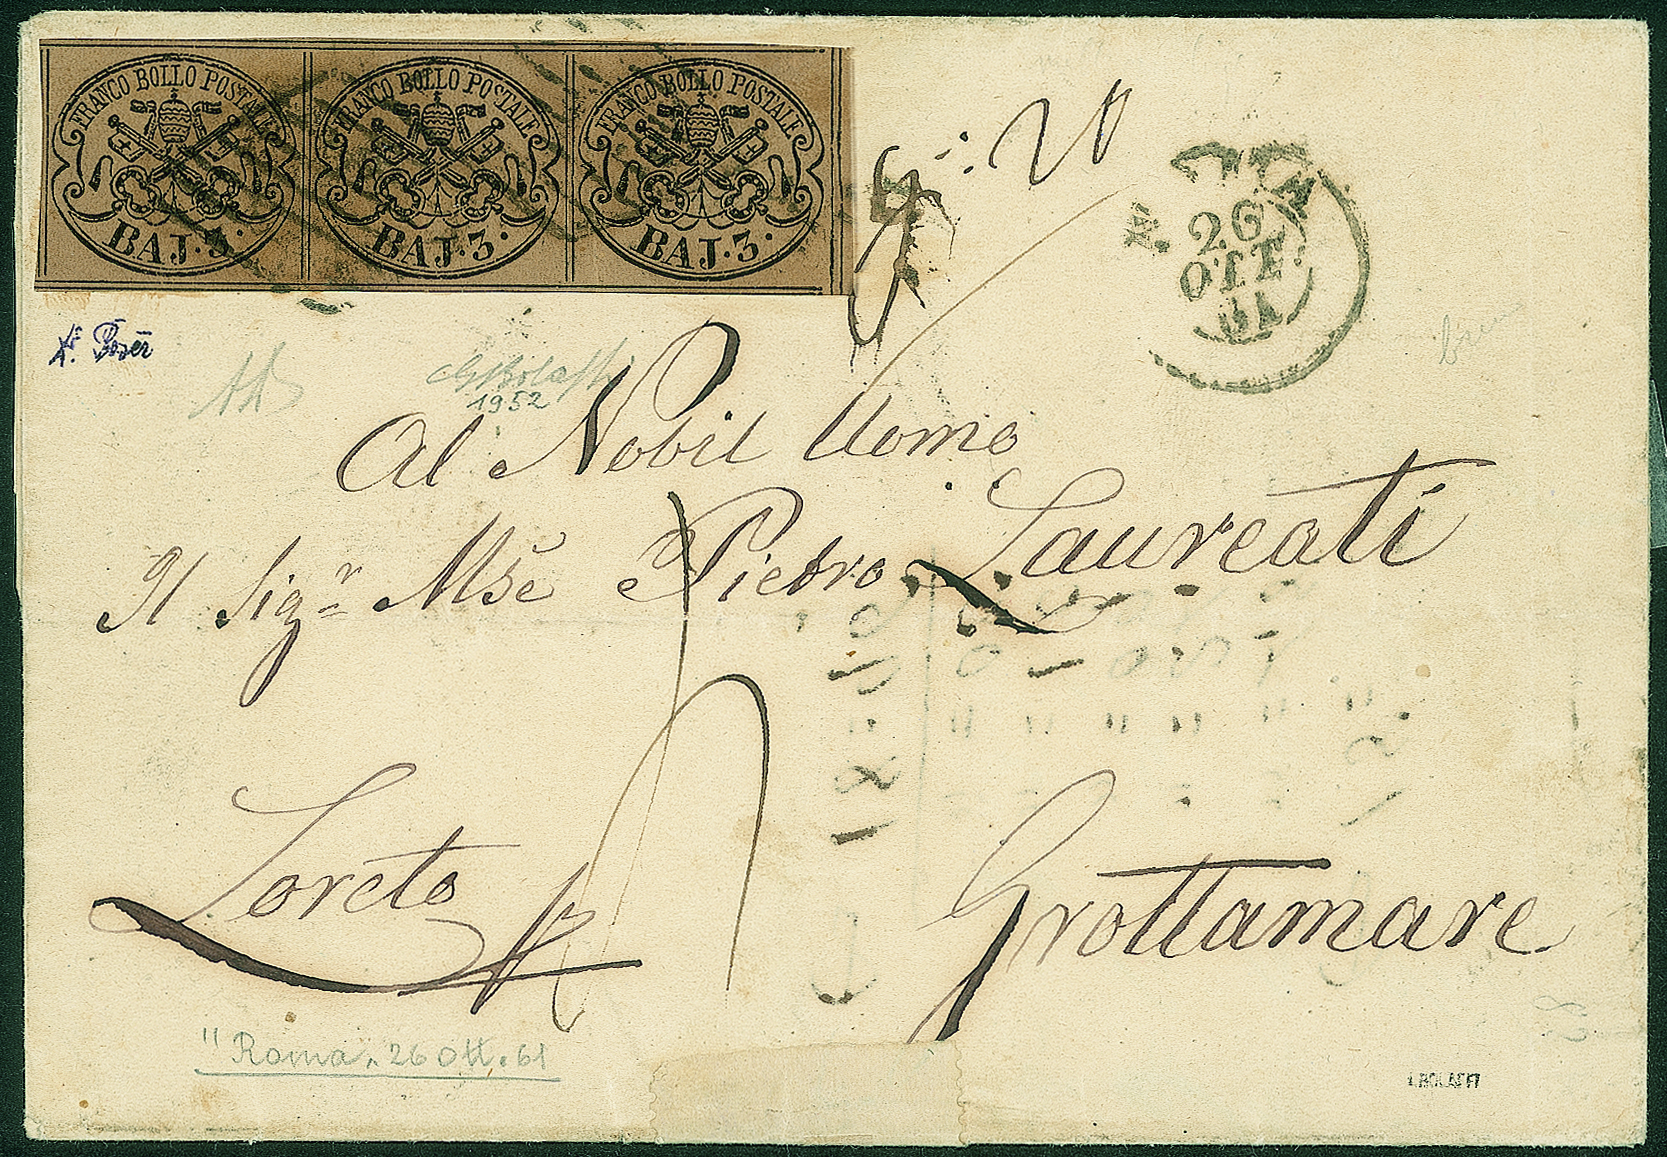 FRANCO BOLLO POSTALE
BAJ. 3.
FRANCO BOLLO POSTALE
BAJ. 3.
FRANCO BOLLO POSTALE
BAJ. 3.
26
OTT
61
1952
Al Nobil Uomo
Il Sigr Mse Pietro Laureati
Loreto
Grottamare
"Roma, 26 Ott. 61
A. BOLAFFI